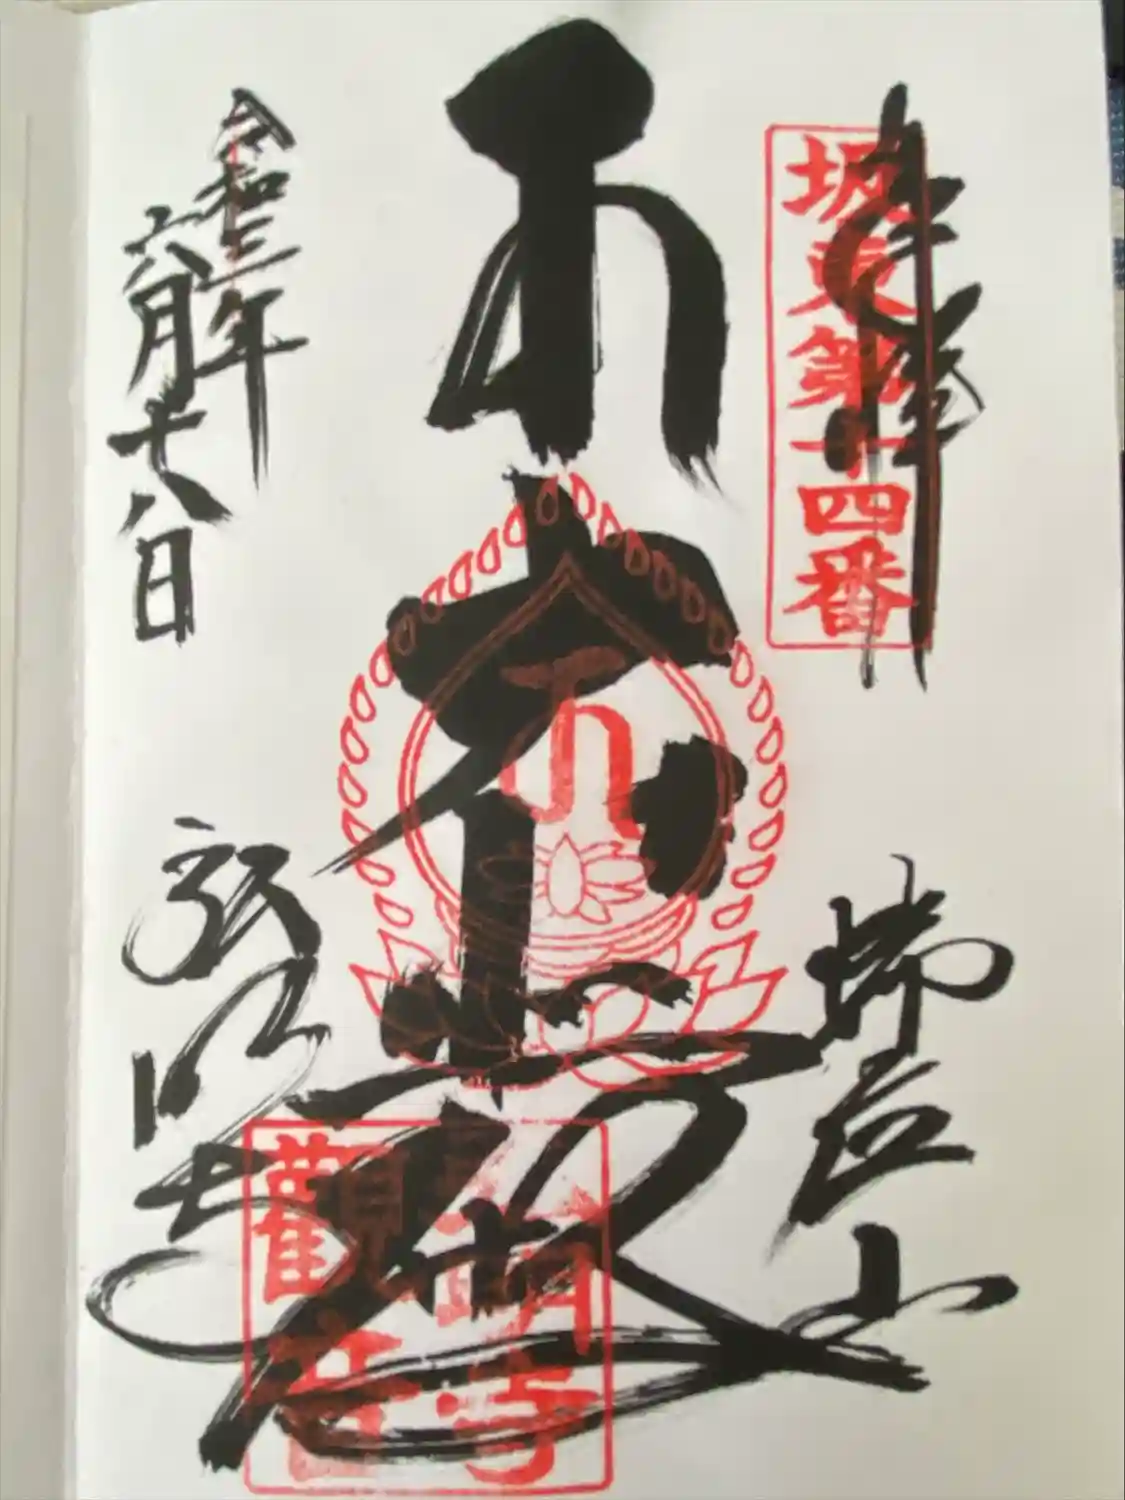 奉拝
坂東第十四番
瑞応山
弘明寺
觀音
令和三年
六月十八日
弘明寺